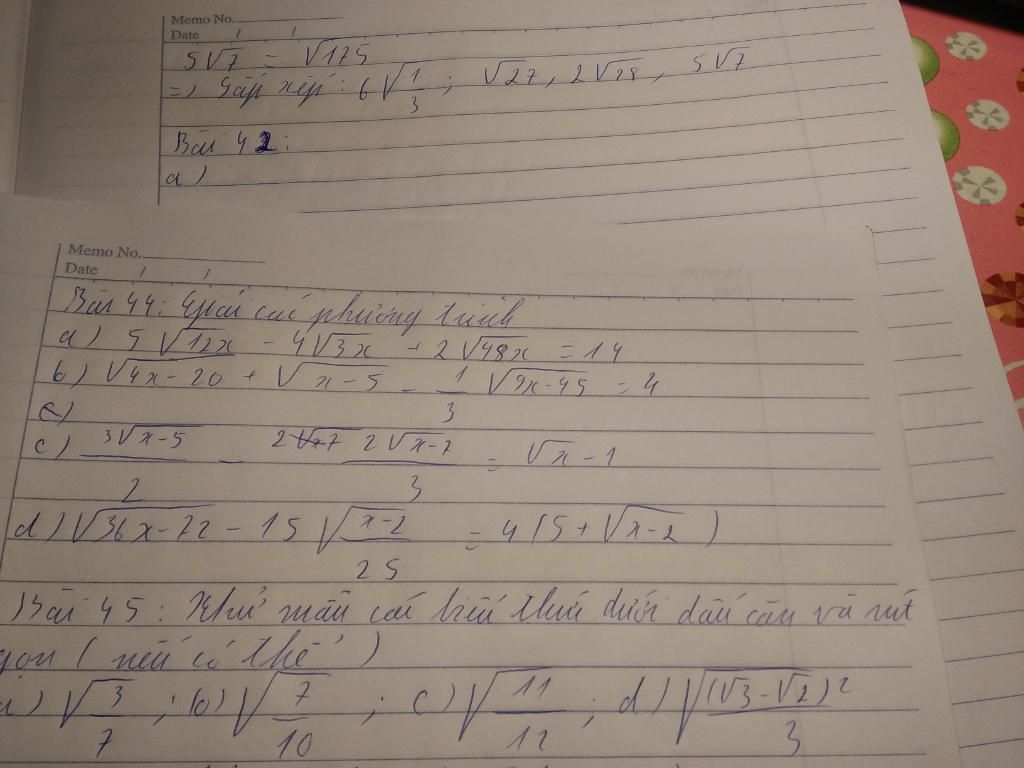 Memo No.
Date / /
5√7 = √175
=> Sắp xếp: 6√(1/3); √27, 2√28, 5√7
Bài 42:
a)
Memo No.
Date / /
Bài 44: Giải các phương trình
a) 5√12x - 4√3x + 2√48x = 14
b) √(4x-20) + √(x-5) - 1/3 √(9x-45) = 4
c) (3√x-5)/2 - (2√x-7)/3 = √x - 1
d) √(36x-72) - 15√((x-2)/25) = 4(5+√(x-2))
Bài 45: Khử mẫu các biểu thức dưới dấu căn và rút
gọn (nếu có thể)
a) √(3/7); b) √(7/10); c) √(11/12); d) √((√3-√2)²/3)